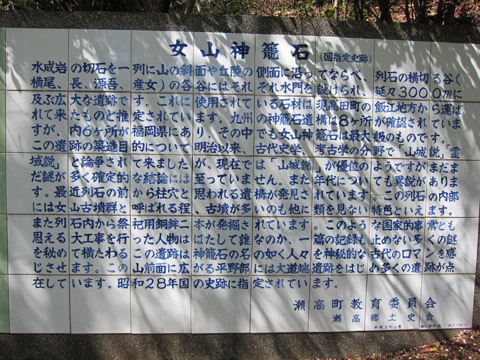 女山神籠石(国指定史跡)
水成岩の切石を一列に山の斜面や丘陵の側面に沿ってならべ、列石の横切る谷(
横尾、長、源吾、産女)の各谷にはそれぞれ水門を設けられ、延々3000mに
及ぶ広大な遺跡です。これに使用されている石材は現高田町の飯江地方から運ば
れて来たものと推定されています。九州の神籠石遺構は8ヶ所が確認されていま
すが、内6ヶ所が福岡県にあり、その中でも女山神籠石は最大級のものです。
この遺跡の築造目的について明治以来、古代史学、考古学の分野で、山城説、霊
域説、と論争されて来ましたが、現在では「山城説」が優位のようですがまだま
だ謎が多く確定的な結論には至っていません。また年代についても異説がありま
す。最近列石の前から柱穴と思われる遺構が発見されています。この列石の内部
には女山古墳群と呼ばれる程、古墳が多いのも他に類を見ない特色といえます。
また列石内から祭祀用銅鉾二本が発掘されています。このような国家的事業とも
思える大工事を行った人物ははたして誰なのか、一篇の記録も止めない多くの謎
を秘めて横たわるこの遺跡は神籠石の名の如く人々を神秘的な古代のロマンを感
じさせます。この山前面に広がる平野部には大道端遺跡をはじめ多くの遺跡が点
在しています。昭和28年国の史跡に指定されています。
瀬高町教育委員会
瀬高郷土史会